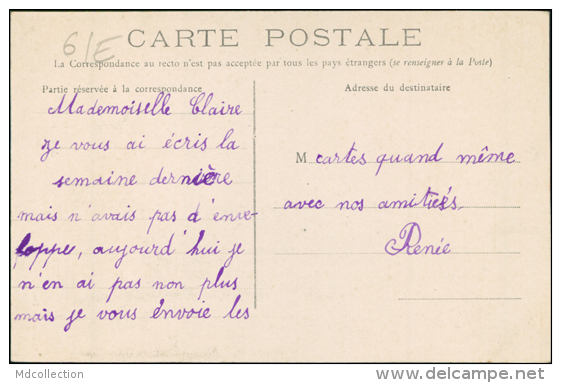 6/E
CARTE POSTALE
La Correspondance au recto n'est pas acceptée par tous les pays étrangers (se renseigner à la Poste)
Partie réservée à la correspondance
Mademoiselle Claire
je vous ai écris la
semaine dernière
mais n'avais pas d'enve-
loppe, aujourd'hui je
n'en ai pas non plus
mais je vous envoie les
Adresse du destinataire
M cartes quand même
avec nos amitiés
Renée
Mdcollection
delcampe.net